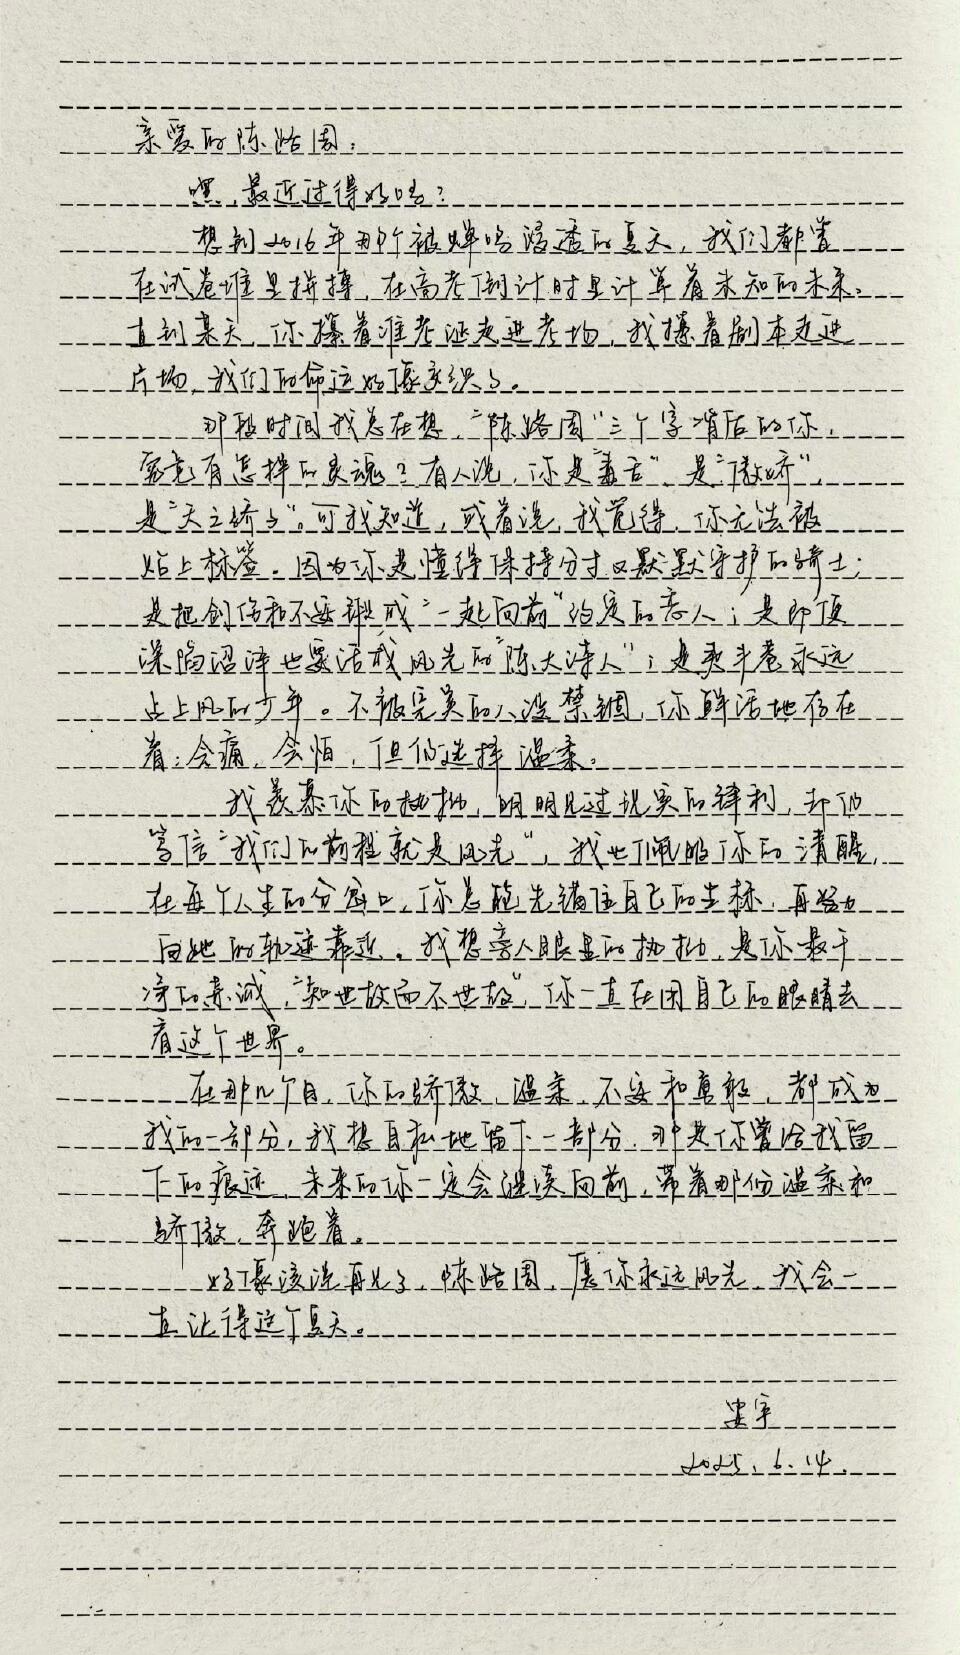 亲爱的陈路周:
嘿,最近过得好吗?
想到2016年那个被蝉鸣浸透的夏天,我们都曾
在试卷堆里拼搏,在高考倒计时里计算着未知的未来。
直到某天,你攥着准考证走进考场,我攥着剧本走进
片场,我们的命运好像交织了。
那段时间我总在想,"陈路周"三个字背后的你,
究竟有怎样的灵魂?有人说,你是"毒舌",是"傲娇",
是"天之骄子"。可我知道,或者说,我觉得,你无法被
贴上标签。因为你是懂得保持分寸又默默守护的骑士;
是把创伤和不安酿成"一起向前"约定的恋人;是即便
深陷沼泽也要活成风光的"陈大诗人";是卖斗卷永远
占上风的少年。不被完美的人设禁锢,你鲜活地存在
着:会痛,会怕,但仍选择温柔。
我羡慕你的执拗,明明见过现实的锋利,却仍
笃信"我们的前程就是风光",我也佩服你的清醒,
在每个人生的分岔口,你总能先锚住自己的坐标,再努力
向她的轨迹靠近。我想旁人眼里的执拗,是你最干
净的赤诚,"知世故而不世故",你一直在用自己的眼睛去
看这个世界。
在那几个月,你的骄傲,温柔,不安和勇敢,都成为
我的一部分,我想自私地留下一部分,那是你曾给我留
下的痕迹,未来的你一定会继续向前,带着那份温柔和
骄傲,奔跑着。
好像该说再见了,陈路周,愿你永远风光,我会一
直记得这个夏天。
2025.6.14.